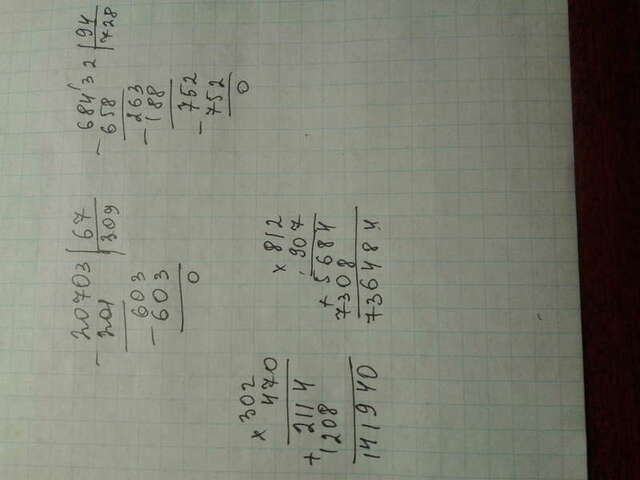 - 20703 | 67
201 | 309
- 603
603
0
- 684'32 | 94
658 | 728
- 263
188
- 752
752
0
x 302
470
+ 2114
1208
141940
x 812
907
+ 5684
7308
736484